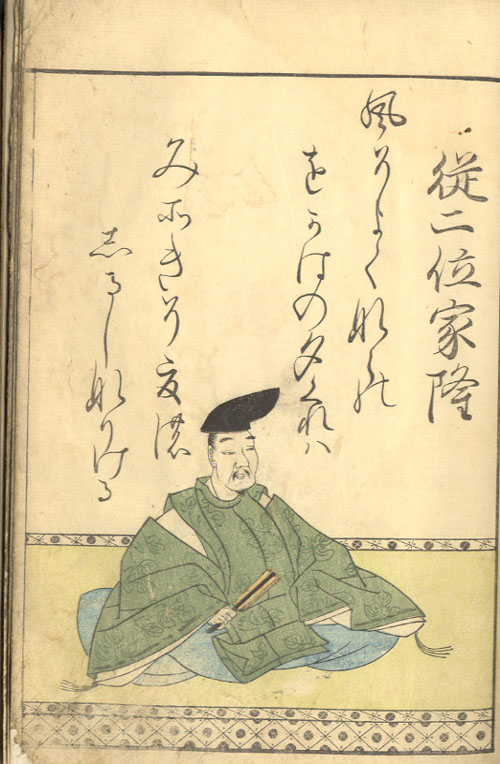 従二位家隆
風そよくならの
をかはの夕くれハ
みそきそ夏の
志るしなりける